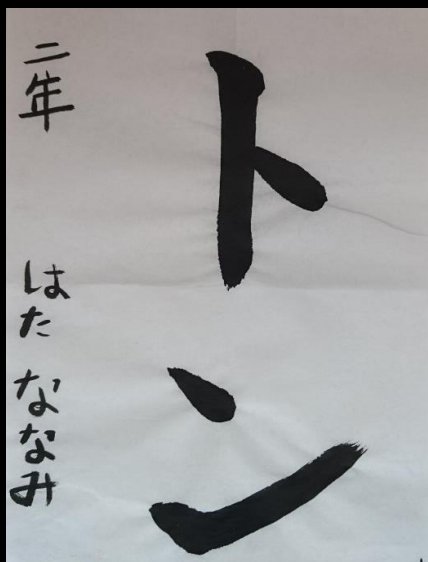 トン
二年 はた ななみ